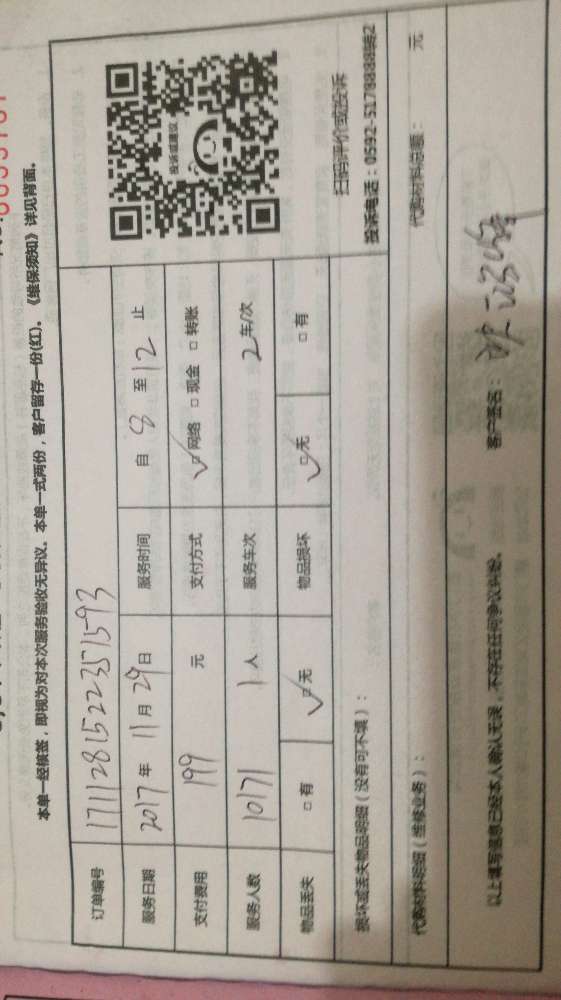 本单一经核签，即视为对本次服务验收无异议。本单一式两份，客户留存一份(红)。《维保须知》详见背面。
订单编号 171128152235715​93
服务日期 2017年11月29日 服务时间 自8至12止
支付费用 199 元 支付方式 ☑网络 □现金 □转账
服务人数 10171 1人 服务车次 2车/次
物品丢失 □有 ☑无 物品损坏 ☑无 □有
投诉或建议
扫码评价或投诉
投诉电话：0592-5178888转2
损坏或丢失物品明细（没有可不填）：
代购材料明细（维修业务）： 代购材料总额： 元
以上填写信息已经本人确认无误，不存在任何争议纠纷。 客户签名：